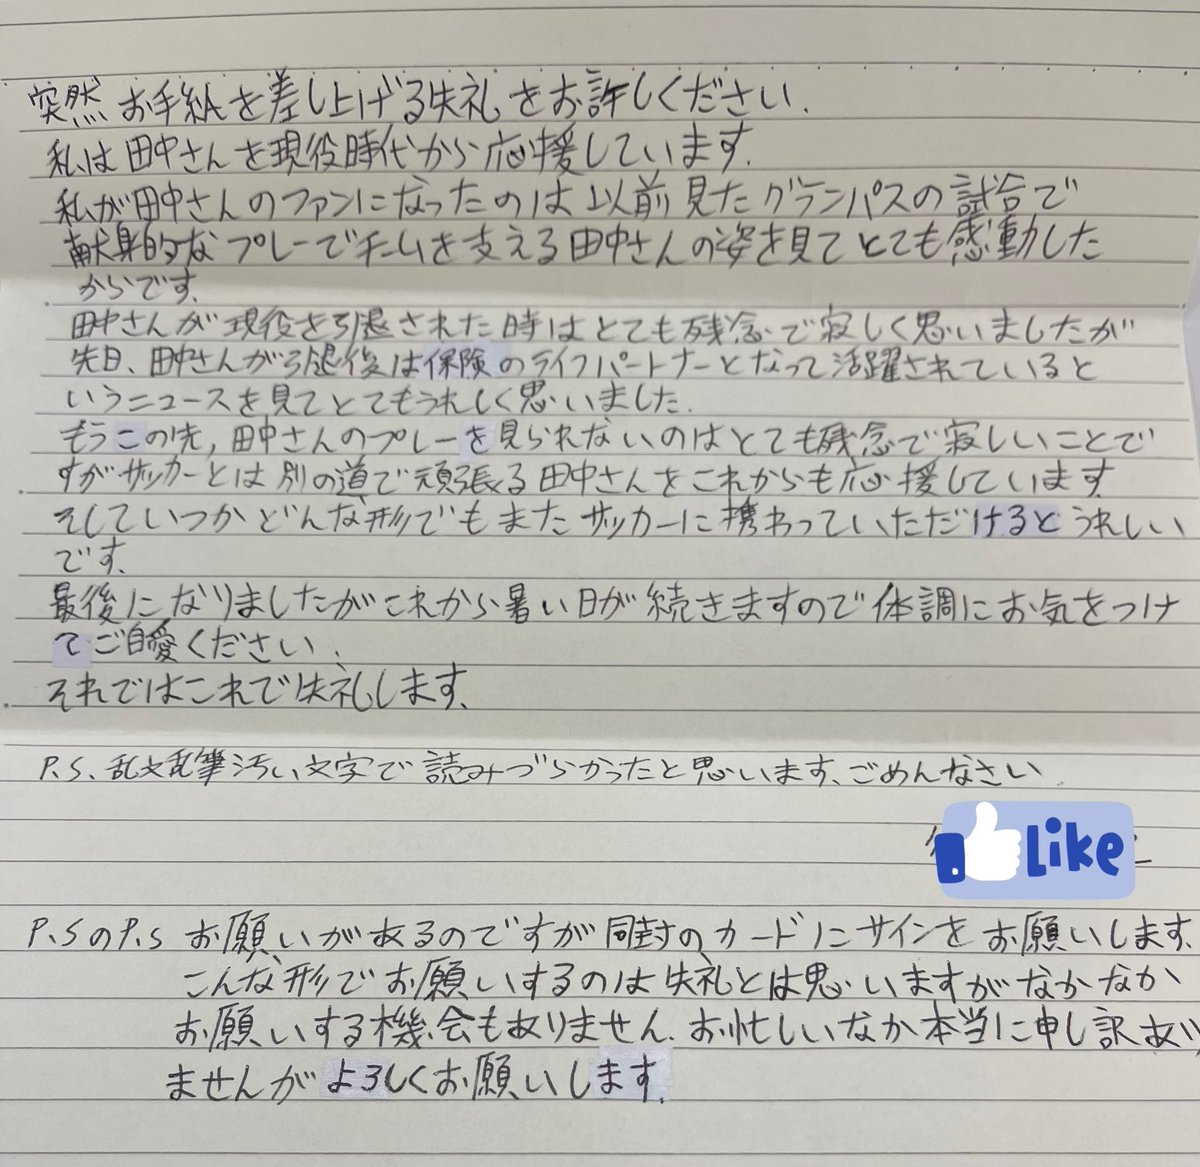 突然お手紙を差し上げる失礼をお許しください.
私は田中さんを現役時代から応援しています.
私が田中さんのファンになったのは以前見たグランパスの試合で
献身的なプレーでチームを支える田中さんの姿を見てとても感動した
からです.
田中さんが現役を引退された時はとても残念で寂しく思いましたが
先日、田中さんが引退後は保険のライフパートナーとなって活躍されていると
いうニュースを見てとてもうれしく思いました.
もうこの先,田中さんのプレーを見られないのはとても残念で寂しいことで
すがサッカーとは別の道で頑張る田中さんをこれからも応援しています
そしていつかどんな形でもまたサッカーに携わっていただけるとうれしい
です.
最後になりましたがこれから暑い日が続きますので体調にお気をつけ
てご自愛ください.
それではこれで失礼します.
P.S、乱文乱筆汚い文字で読みづらかったと思います、ごめんなさい.
Like
P.SのP.S お願いがあるのですが同封のカードにサインをお願いします.
こんな形でお願いするのは失礼とは思いますがなかなか
お願いする機会もありません.お忙しいなか本当に申し訳あり
ませんがよろしくお願いします.